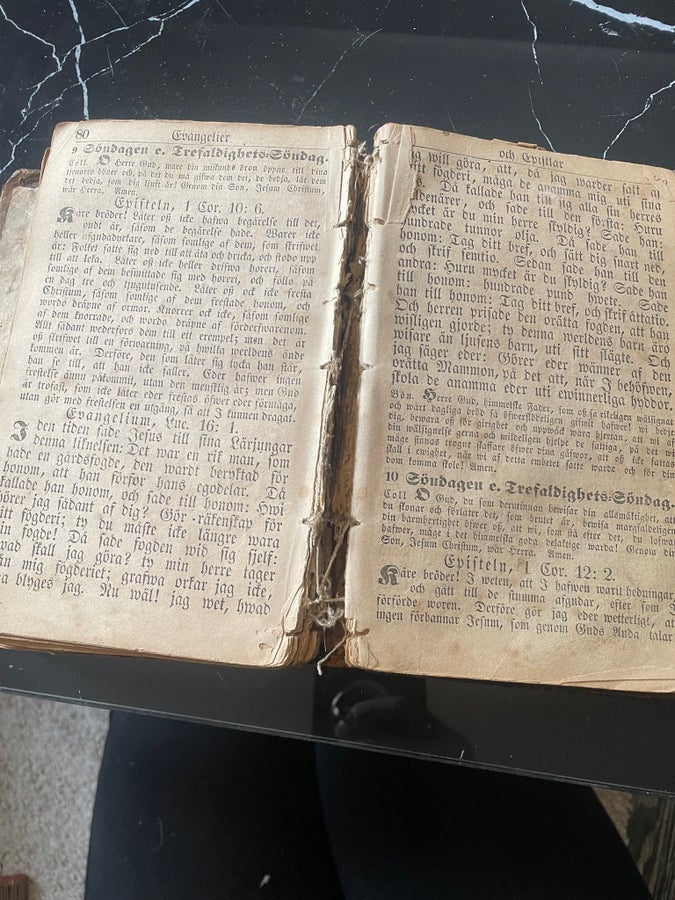 80 Evangelier
9 Söndagen e. Trefaldighets-Söndag.
Coll. O Herre Gud, wänd din miskunds öron öppne till dina
tjenares böner och, på det du må gifwa dem det, de bedja, lät dem
det bedja, som dig ljuft är! Genom din Son, Jesum Christum,
wår Herra. Amen.
Episteln, 1 Cor. 10: 6.
Käre bröder! Låter oß icke hafwa begärelse till det,
ondt är, såsom de begärelse hade. Warer icke
heller afgudadyrkare, såsom somlige af dem, som skrifwet
är: Folket satte sig ned till att äta och dricka, och stodo upp
till att leka. Låter oß icke heller drifwa horeri, såsom
somlige af dem besmittade sig med horeri, och föllo på
en dag tre och tjugutusende. Låter oß ock icke fresta
Christum, såsom somlige af dem frestade honom, och
wordo dräpne af ormar. Knorrer ock icke, såsom somlige
af dem knorrade, och wordo dräpne af förderfwarenom.
Allt sådant wederfors dem till ett exempel; men det är
oß skrifwet till en förwarning, på hwilka werldens ände
kommen är. Derföre, den som låter sig tycka han står,
han se till, att han icke faller. Eder hafwer ingen
frestelse ännu påkommit, utan den mensklig är; men Gud
är trofast, som icke låter eder frestas öfwer eder förmåga,
utan gör med frestelsen en utgång, så att I kunnen dragat.
Evangelium, Luc. 16: 1.
I den tiden sade Jesus till sina Lärjungar
denna liknelsen: Det war en rik man, som
hade en gårdsfogde, den wardt beryktad för
honom, att han förfor hans egodelar. Då
kallade han honom, och sade till honom: Hwi
hörer jag sådant af dig? Gör räkenskap för
ditt fögderi; ty du måste icke längre wara
min fogde! Då sade fogden wid sig sjelf:
wad skall jag göra? ty min herre tager
än mig fögderiet; grafwa orkar jag icke,
ra blyges jag. Nu wäl! jag wet, hwad
och Epistlar
ig will göra, att, då jag warder satt af
itt fögderi, måga de anamma mig uti sina
s. Då kallade han till sig alla sin herres
ldenärer, och sade till den första: Huru
ycket är du min herre skyldig? Sade han:
hundrade tunnor olja. Då sade han till
honom: Tag ditt bref, och sätt dig snart ned,
och skrif femtio. Sedan sade han till den
andra: Huru mycket är du skyldig? Sade han
till honom: hundrade pund hwete. Sade
han till honom: Tag ditt bref, och skrif åttatio.
Och herren prisade den orätta fogden, att han
wisligen gjorde; ty denna werldens barn äro
wisare än ljusens barn, uti sitt slägte. Och
jag säger eder: Görer eder wänner af den
orätta Mammon, på det att, när I behöfwen,
skola de anamma eder uti ewinnerliga hyddor.
Bön. Herre Gud, himmelske Fader, som oß så rikeligen wälsignar
och wårt dagliga bröd så öfwerflödeligen gifwit hafwer! wi bedje
dig, bewara oß för girighet och upwäck wåra hjertan, att wi af
din wälsignelse gerna och mildeligen hjelpe de fattiga, på det wi
måge finnas trogne skaffare öfwer dina gåfwor, att oß icke fattas
skall i ewighet, när wi af detta embetet satte warde och för din
dom komma skole! Amen.
10 Söndagen e. Trefaldighets-Söndag.
Coll. O Gud, du som derutinnan bewisar din allsmäktighet, att
du skonar och förlåter det, som brutet är, bewisa mångfaldeligen
din barmhertighet öfwer oß, att wi, som stå efter det, du lofwat
hafwer, måge i det himmelska goda delaktige warda! Genom din
Son, Jesum Christum, wår Herra. Amen.
Episteln, 1 Cor. 12: 2.
Käre bröder! I weten, att I hafwen warit hedningar,
och gått till de stumma afgudar, efter som I
förförde woren. Derföre gör jag eder wetterligt, at
ingen förbannar Jesum, som genom Guds Anda talar